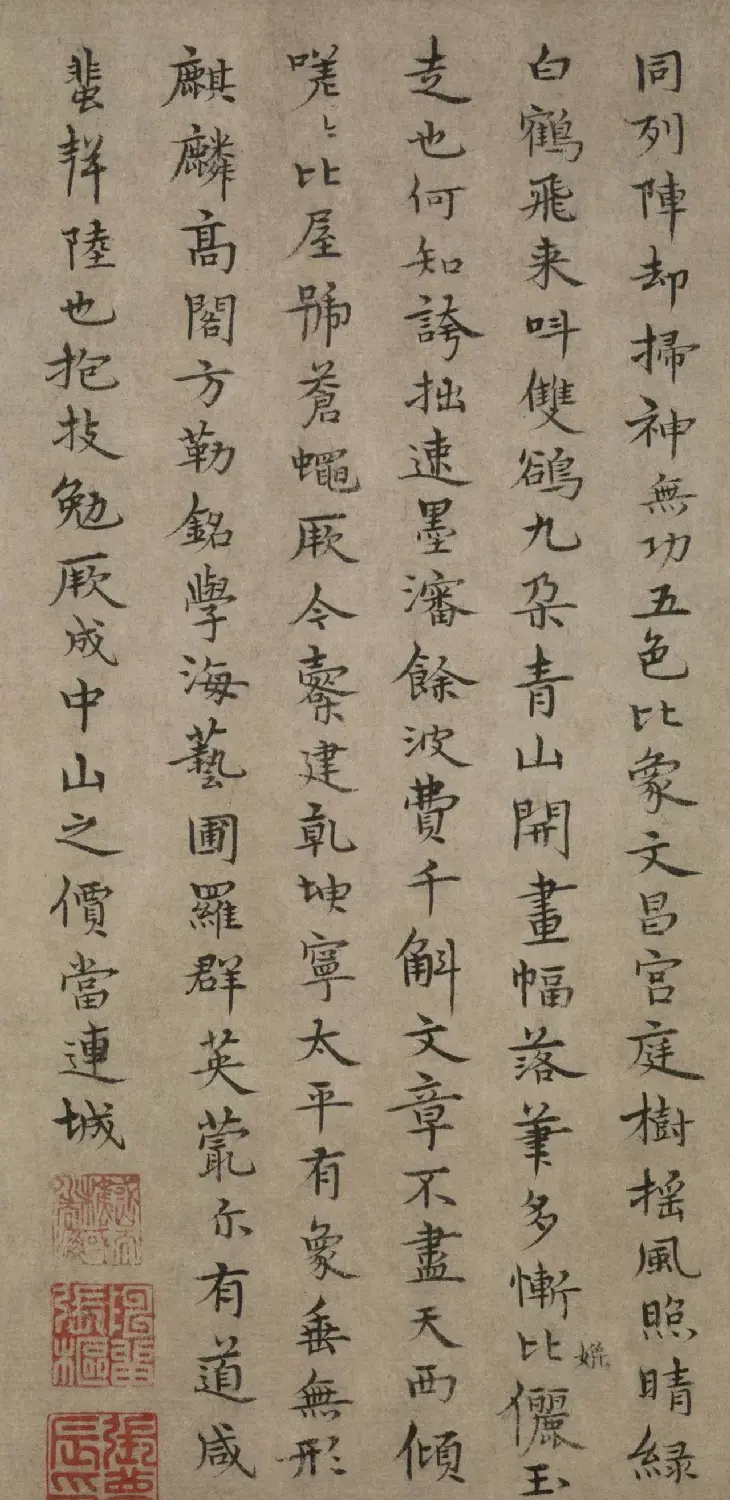 同列陣却掃神無功五色比象文昌宮庭樹搖風照晴緑
白鶴飛来呌雙鵒九朶青山開畫幅落筆多慚比儷玉
走也何知誇拙速墨瀋餘波費千斛文章不盡天西傾
嘊〻比屋號蒼蠅厥令櫜建乾坤寧太平有象垂無形
麒麟髙閣方勒銘學海藝圃羅群英薿尓有道咸
蜚拜陸也抱技勉厥成中山之價當連城